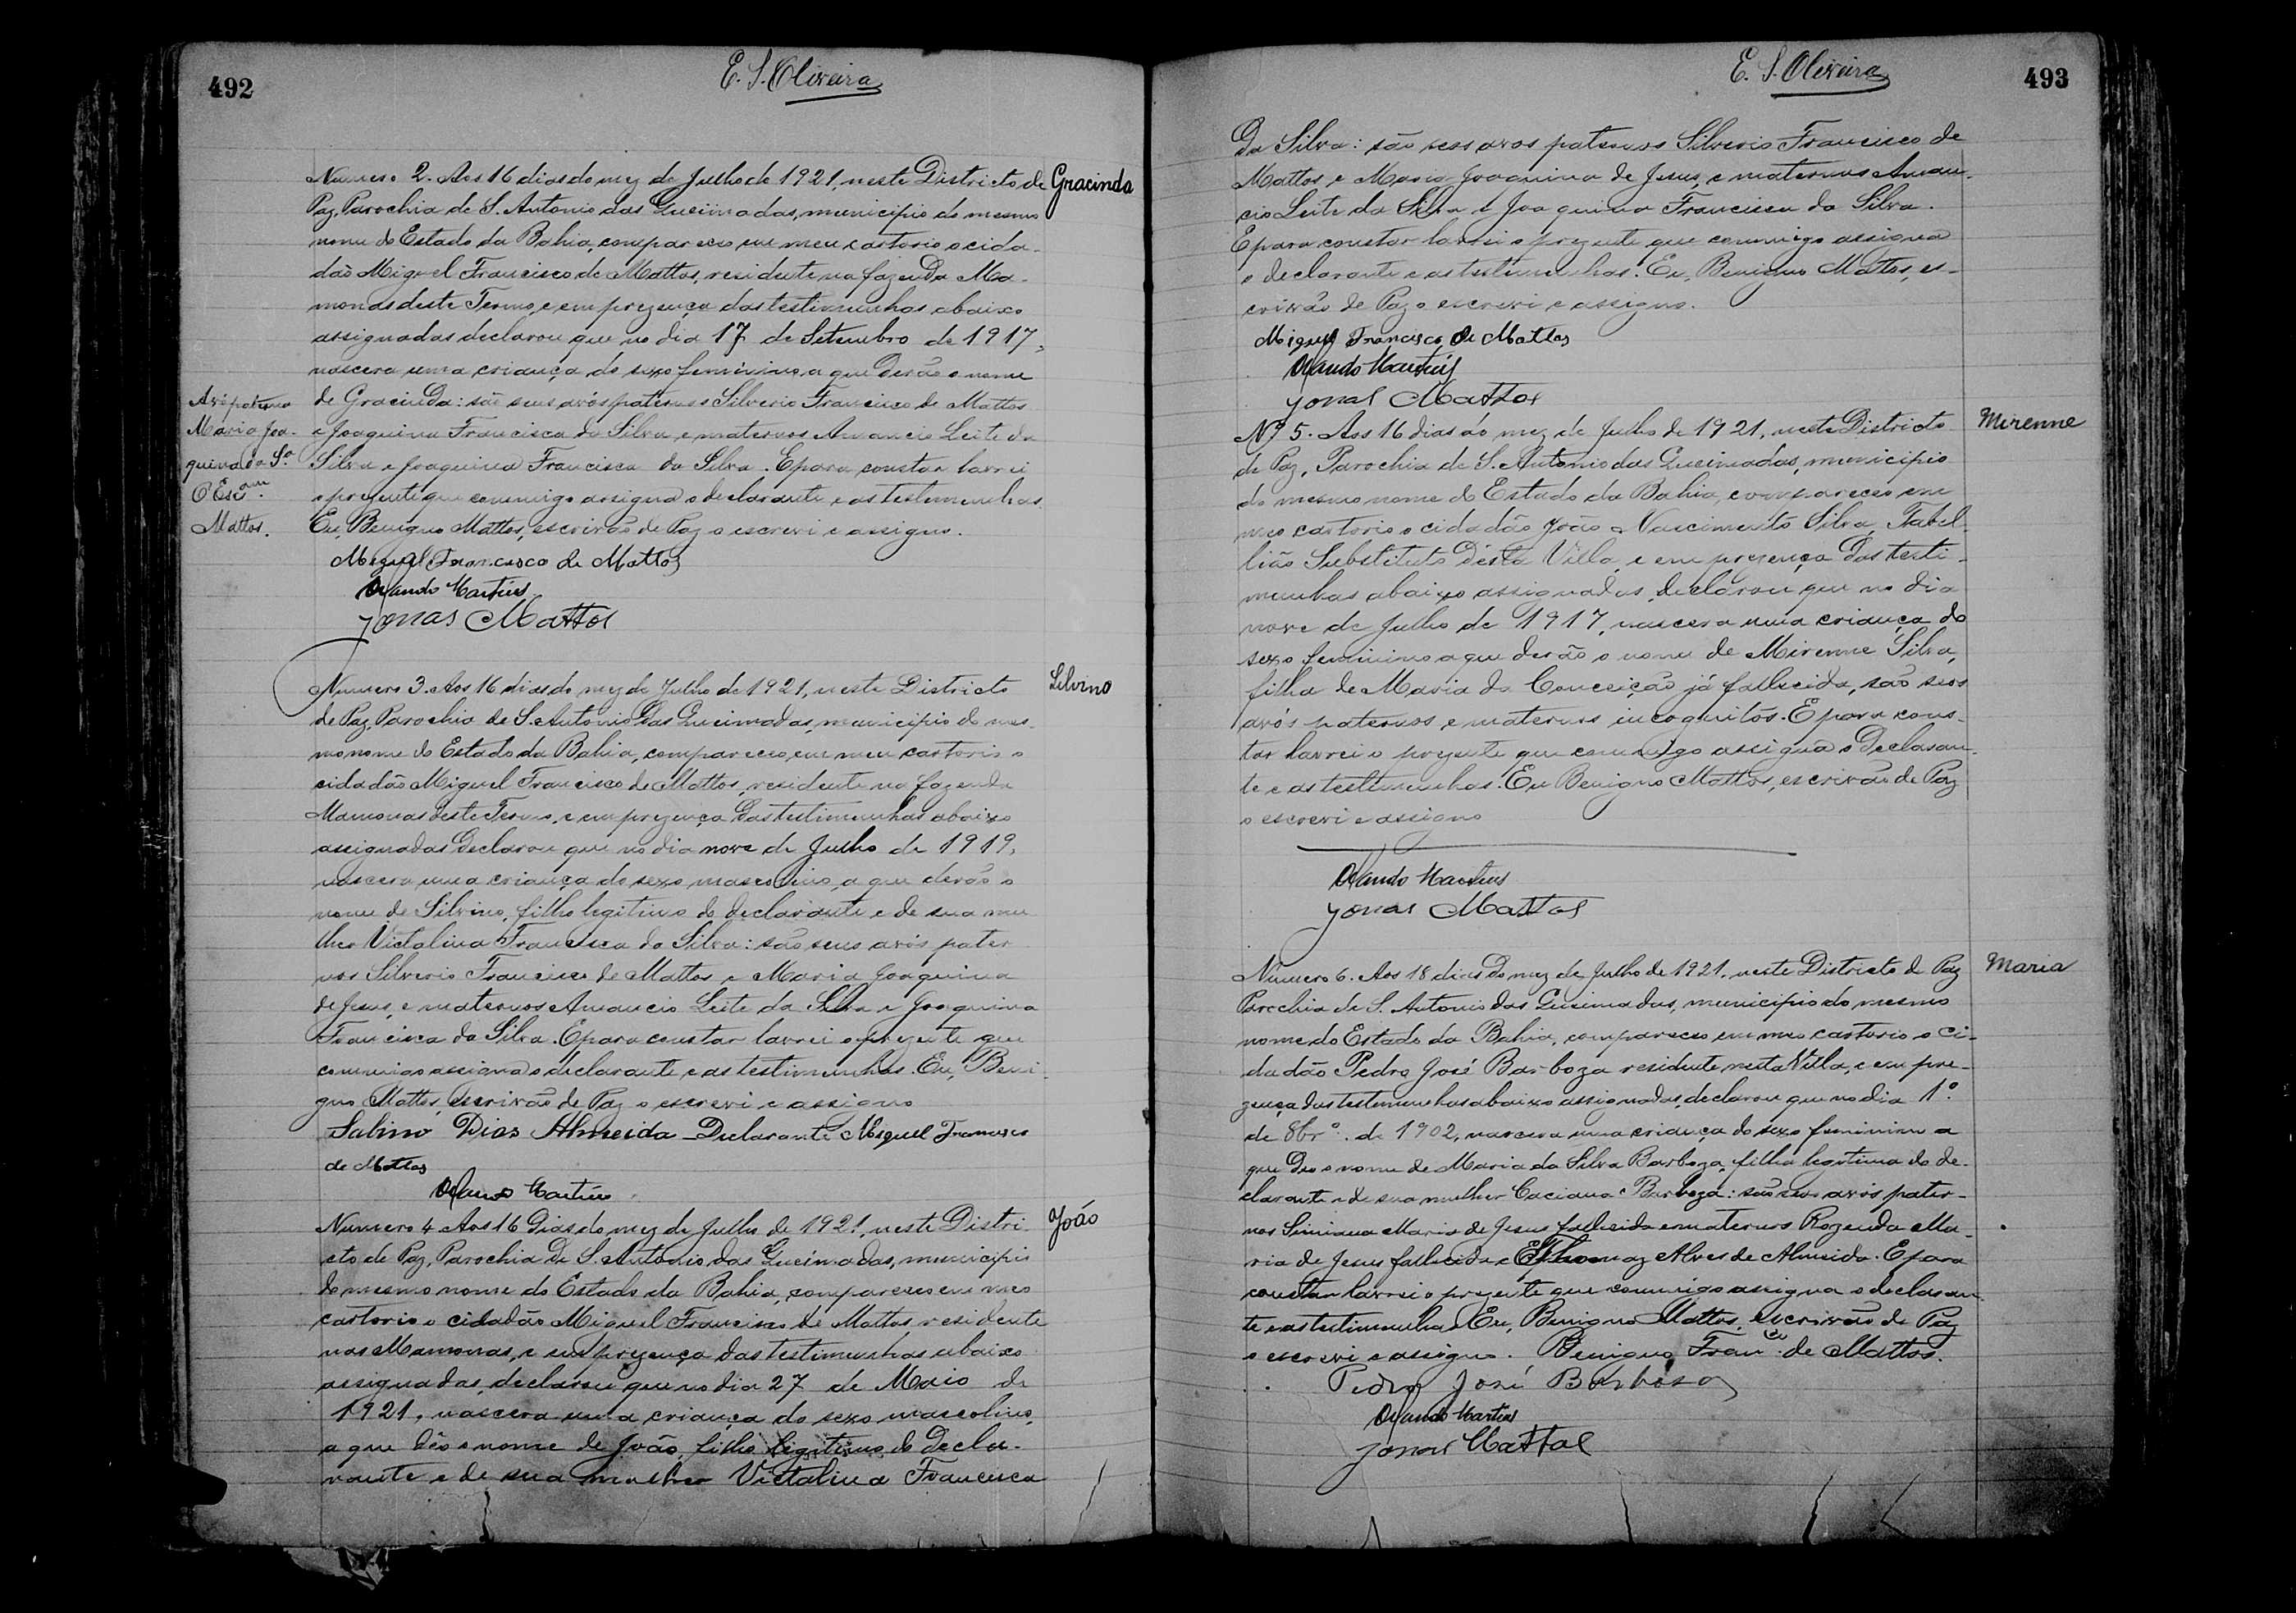 492
E. S. Oliveira
Numero 2. Aos 16 dias do mez de Julho de 1921, neste Districto de
Gracinda
Paz, Parochia de S. Antonio das Queimadas, municipio do mesmo
nome do Estado da Bahia, compareceo em meu cartorio o cida-
dão Miguel Francisco de Mattos, residente na fazenda Ma-
monas deste Termo, e em prezença das testimunhas abaixo
assignadas declarou que no dia 17 de Setembro de 1917,
nascera uma criança do sexo feminino a que derão o nome
de Gracinda: são seus avós paternos Silverio Francisco de Mattos
e Joaquina Francisca da Silva e maternos Amancio Leite da
Silva e Joaquina Francisca da Silva. E para constar lavrei
o prezente que commigo assigna o declarante e as testimunhas.
Eu, Benigno Mattos, escrivão de Paz o escrevi e assigno.
Avó paterna
Maria Joa-
quina da Sª
O Escam.
Mattos.
Miguel Francisco de Mattos
Orlando Martins
Jonas Mattos
Numero 3. Aos 16 dias do mez de Julho de 1921, neste Districto
Silvino
de Paz, Parochia de S. Antonio das Queimadas, municipio do mes-
mo nome do Estado da Bahia, compareceo, em meu cartorio o
cidadão Miguel Francisco de Mattos, residente na fazenda
Mamonas deste Termo, e em prezença das testimunhas abaixo
assignadas declarou que no dia nove de Julho de 1919,
nascera uma criança do sexo masculino, a que derão o
nome de Silvino, filho legitimo do declarante e de sua mu-
lher Victalina Francisca da Silva: são seus avós pater-
nos Silverio Francisco de Mattos e Maria Joaquina
de Jesus, e maternos Amancio Leite da Silva e Joaquina
Francisca da Silva. E para constar lavrei o prezente que
commigo assigna o declarante e as testimunhas. Eu, Beni-
gno Mattos, Escrivão de Paz o escrevi e assigno
Sabino Dias Almeida Declarante Miguel Francisco
de Mattos
Orlando Martins
Numero 4 Aos 16 Dias do mez de Julho de 1921, neste Distri-
João
cto de Paz, Parochia de S. Antonio das Queimadas, municipio
do mesmo nome do Estado da Bahia, compareceo em meo
cartorio o cidadão Miguel Francisco de Mattos residente
nas Mamonas, e em prezença das testimunhas abaixo
assignadas, declarou que no dia 27 de Maio de
1921, nascera uma criança do sexo masculino,
a que dêo o nome de João filho legitimo do decla-
rante e de sua mulher Victalina Francisca
E. S. Oliveira
493
Da Silva: são seos avos paternos Silverio Francisco de
Mattos e Maria Joaquina de Jesus, e maternos Aman-
cio Leite da Silva e Joaquina Francisca da Silva.
E para constar lavrei o prezente que commigo assigna
o declarante e as testimunhas. Eu, Benigno Mattos, es-
crivão de Paz o escrevi e assigno.
Miguel Francisco de Mattos
Orlando Martins
Jonas Mattos
Nº 5. Aos 16 dias do mez de Julho de 1921, neste Districto
Mirenne
de Paz, Parochia de S. Antonio das Queimadas, municipio
do mesmo nome do Estado da Bahia, compareceo em
meo cartorio o cidadão João Nascimento Silva, Tabel-
lião Substituto désta Villa, e em prezença das testi-
munhas abaixo assignadas, declarou que no dia
nove de Julho de 1917, nascera uma criança do
sexo feminino a que derão o nome de Mirenne Silva,
filha de Maria da Conceição já fallecida, são seos
avós paternos, e maternos incognitos. E para cons-
tar lavrei o prezente que commigo assigna o Declaran-
te e as testimunhas. Eu Benigno Mattos, escrivão de Paz
o escrevi e assigno
Orlando Martins
Jonas Mattos
Número 6. Aos 18 dias do mez de Julho de 1921, neste Districto de Paz
Maria
Parochia de S. Antonio das Queimadas, municipio do mesmo
nome do Estado da Bahia, compareceo em meo cartorio o ci-
dadão Pedro José Barboza residente nesta Villa, e em pre-
zença das testimunhas abaixo assignadas, declarou que no dia 1º
de 8brº. de 1902, nascera uma criança do sexo feminino a
que Deo o nome de Maria da Silva Barboza, filha legitima do de-
clarante e de sua mulher Caciana Barboza: são seos avós pater-
nos Siminana Maria de Jesus fallecida e maternos Rozenda Ma-
ria de Jesus fallecida e Thomaz Alves de Almeida. E para
constar lavrei o prezente que commigo assigna o declaran-
te e as testimunhas Eu, Benigno Mattos, escrivão de Paz
o escrevi e assigno. Benigno Franco de Mattos.
Pedro José Barbosa
Orlando Martins
Jonas Mattos